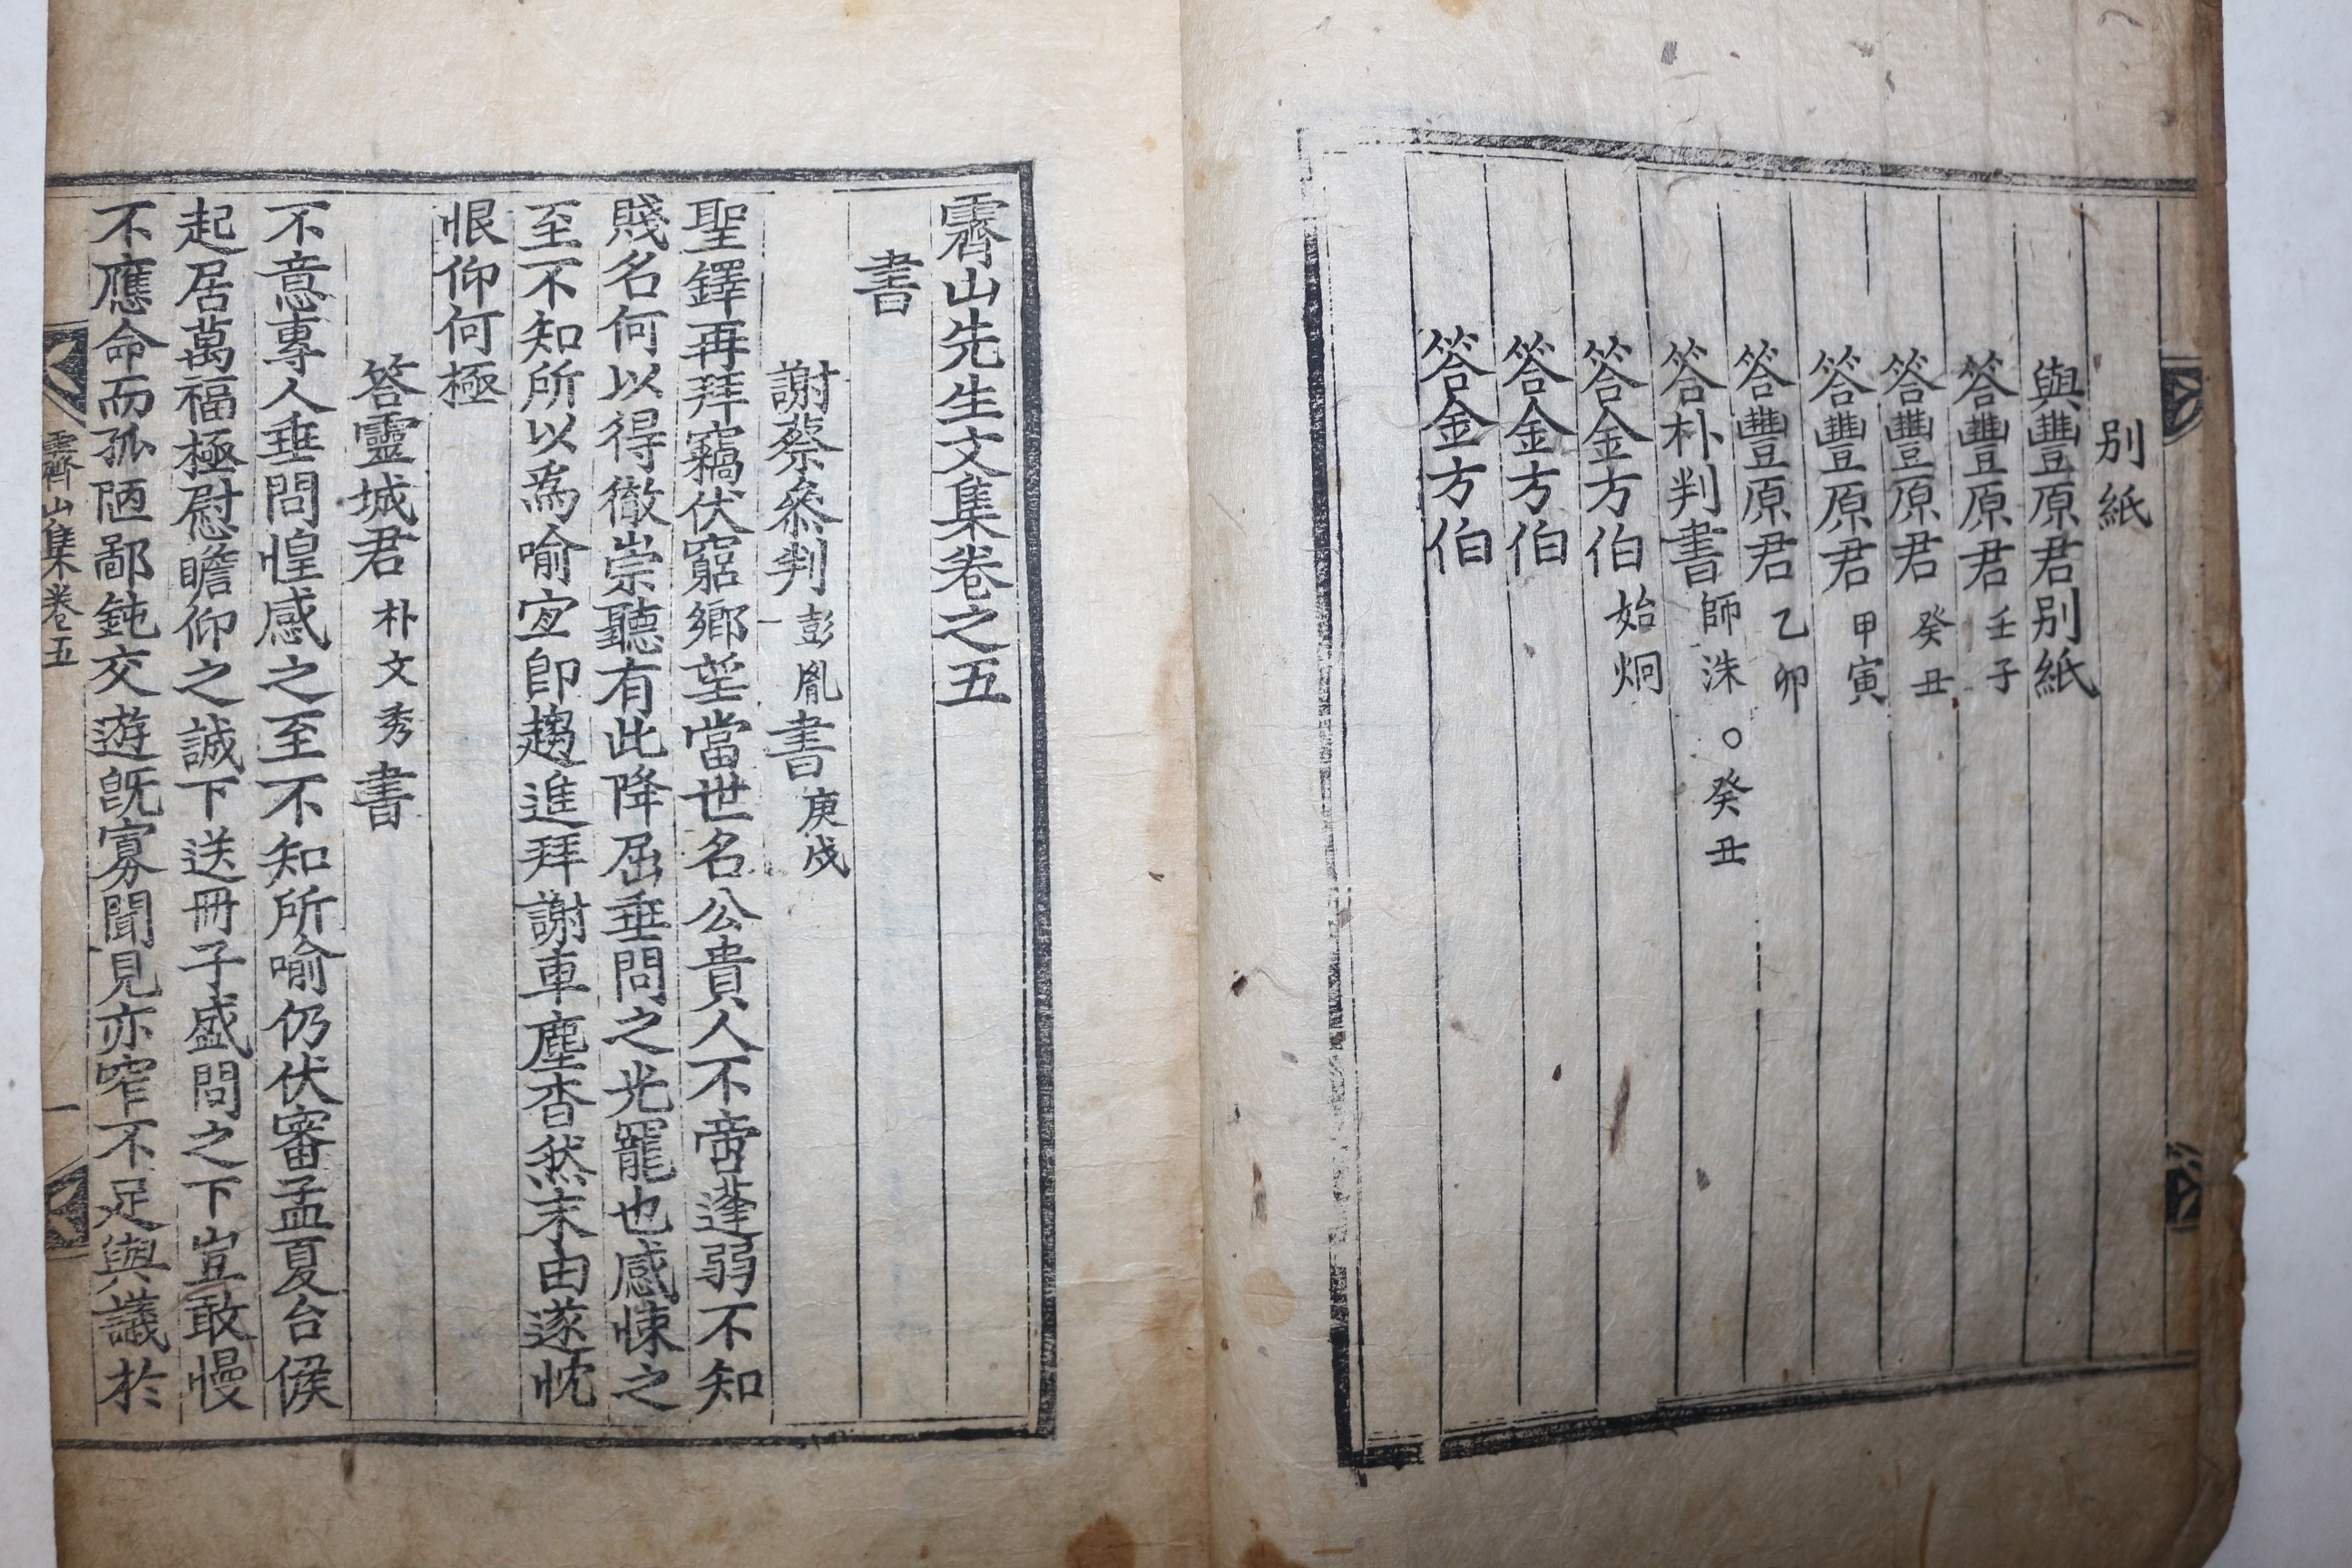 別紙
與豐原君別紙
答豐原君 壬子
答豐原君 癸丑
答豐原君 甲寅
答豐原君 乙卯
答朴判書 師洙○癸丑
答金方伯 始炯
答金方伯
答金方伯
霽山先生文集卷之五
書
謝蔡叅判 彭胤 書 庚戌
聖鐸再拜竊伏窮鄉望當世名公貴人不啻蓬弱不知
賤名何以得徹崇聽有此降屈垂問之光寵也感悚之
至不知所以爲喻宜卽趨進拜謝車塵杳然末由遂忱
恨仰何極
答靈城君 朴文秀 書
不意專人垂問惶感之至不知所喻仍伏審孟夏台候
起居萬福極慰瞻仰之誠下送冊子盛問之下豈敢慢
不應命而孤陋鄙鈍交遊旣寡聞見亦窄不足與議於
霽山集卷五
一